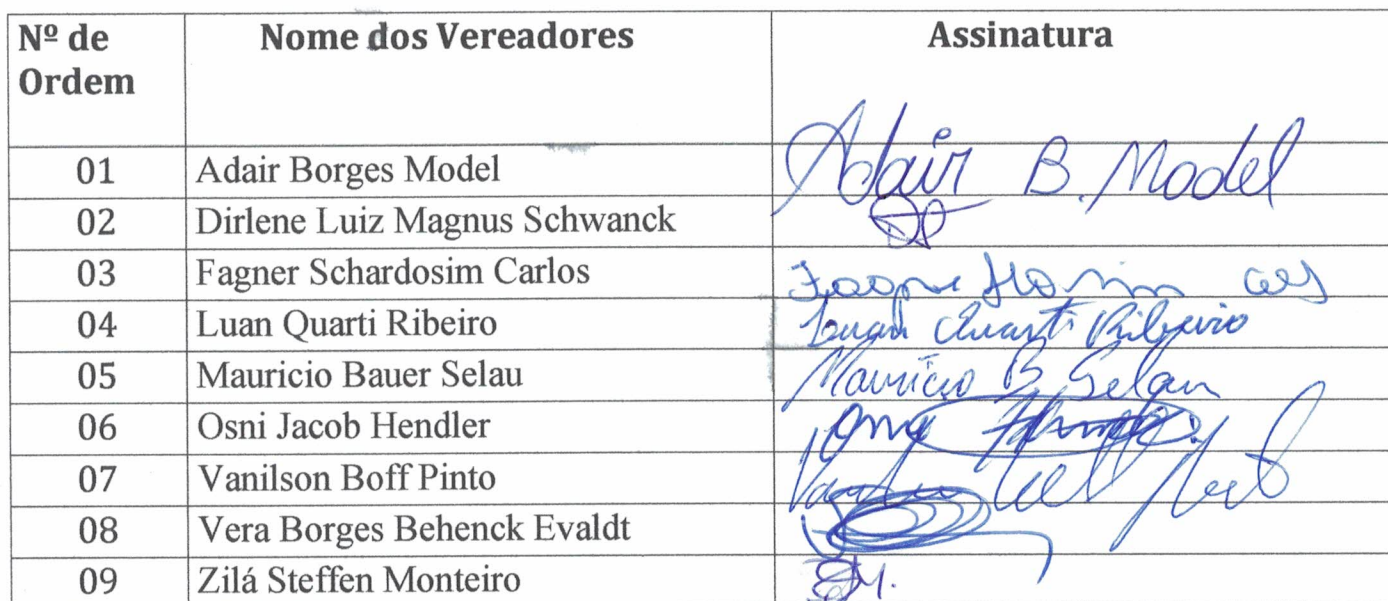 Nº de Ordem Nome dos Vereadores Assinatura
01 Adair Borges Model Adair B. Model
02 Dirlene Luiz Magnus Schwanck
03 Fagner Schardosim Carlos
04 Luan Quarti Ribeiro Luan Quarti Ribeiro
05 Mauricio Bauer Selau Maurício B. Selau
06 Osni Jacob Hendler
07 Vanilson Boff Pinto
08 Vera Borges Behenck Evaldt
09 Zilá Steffen Monteiro